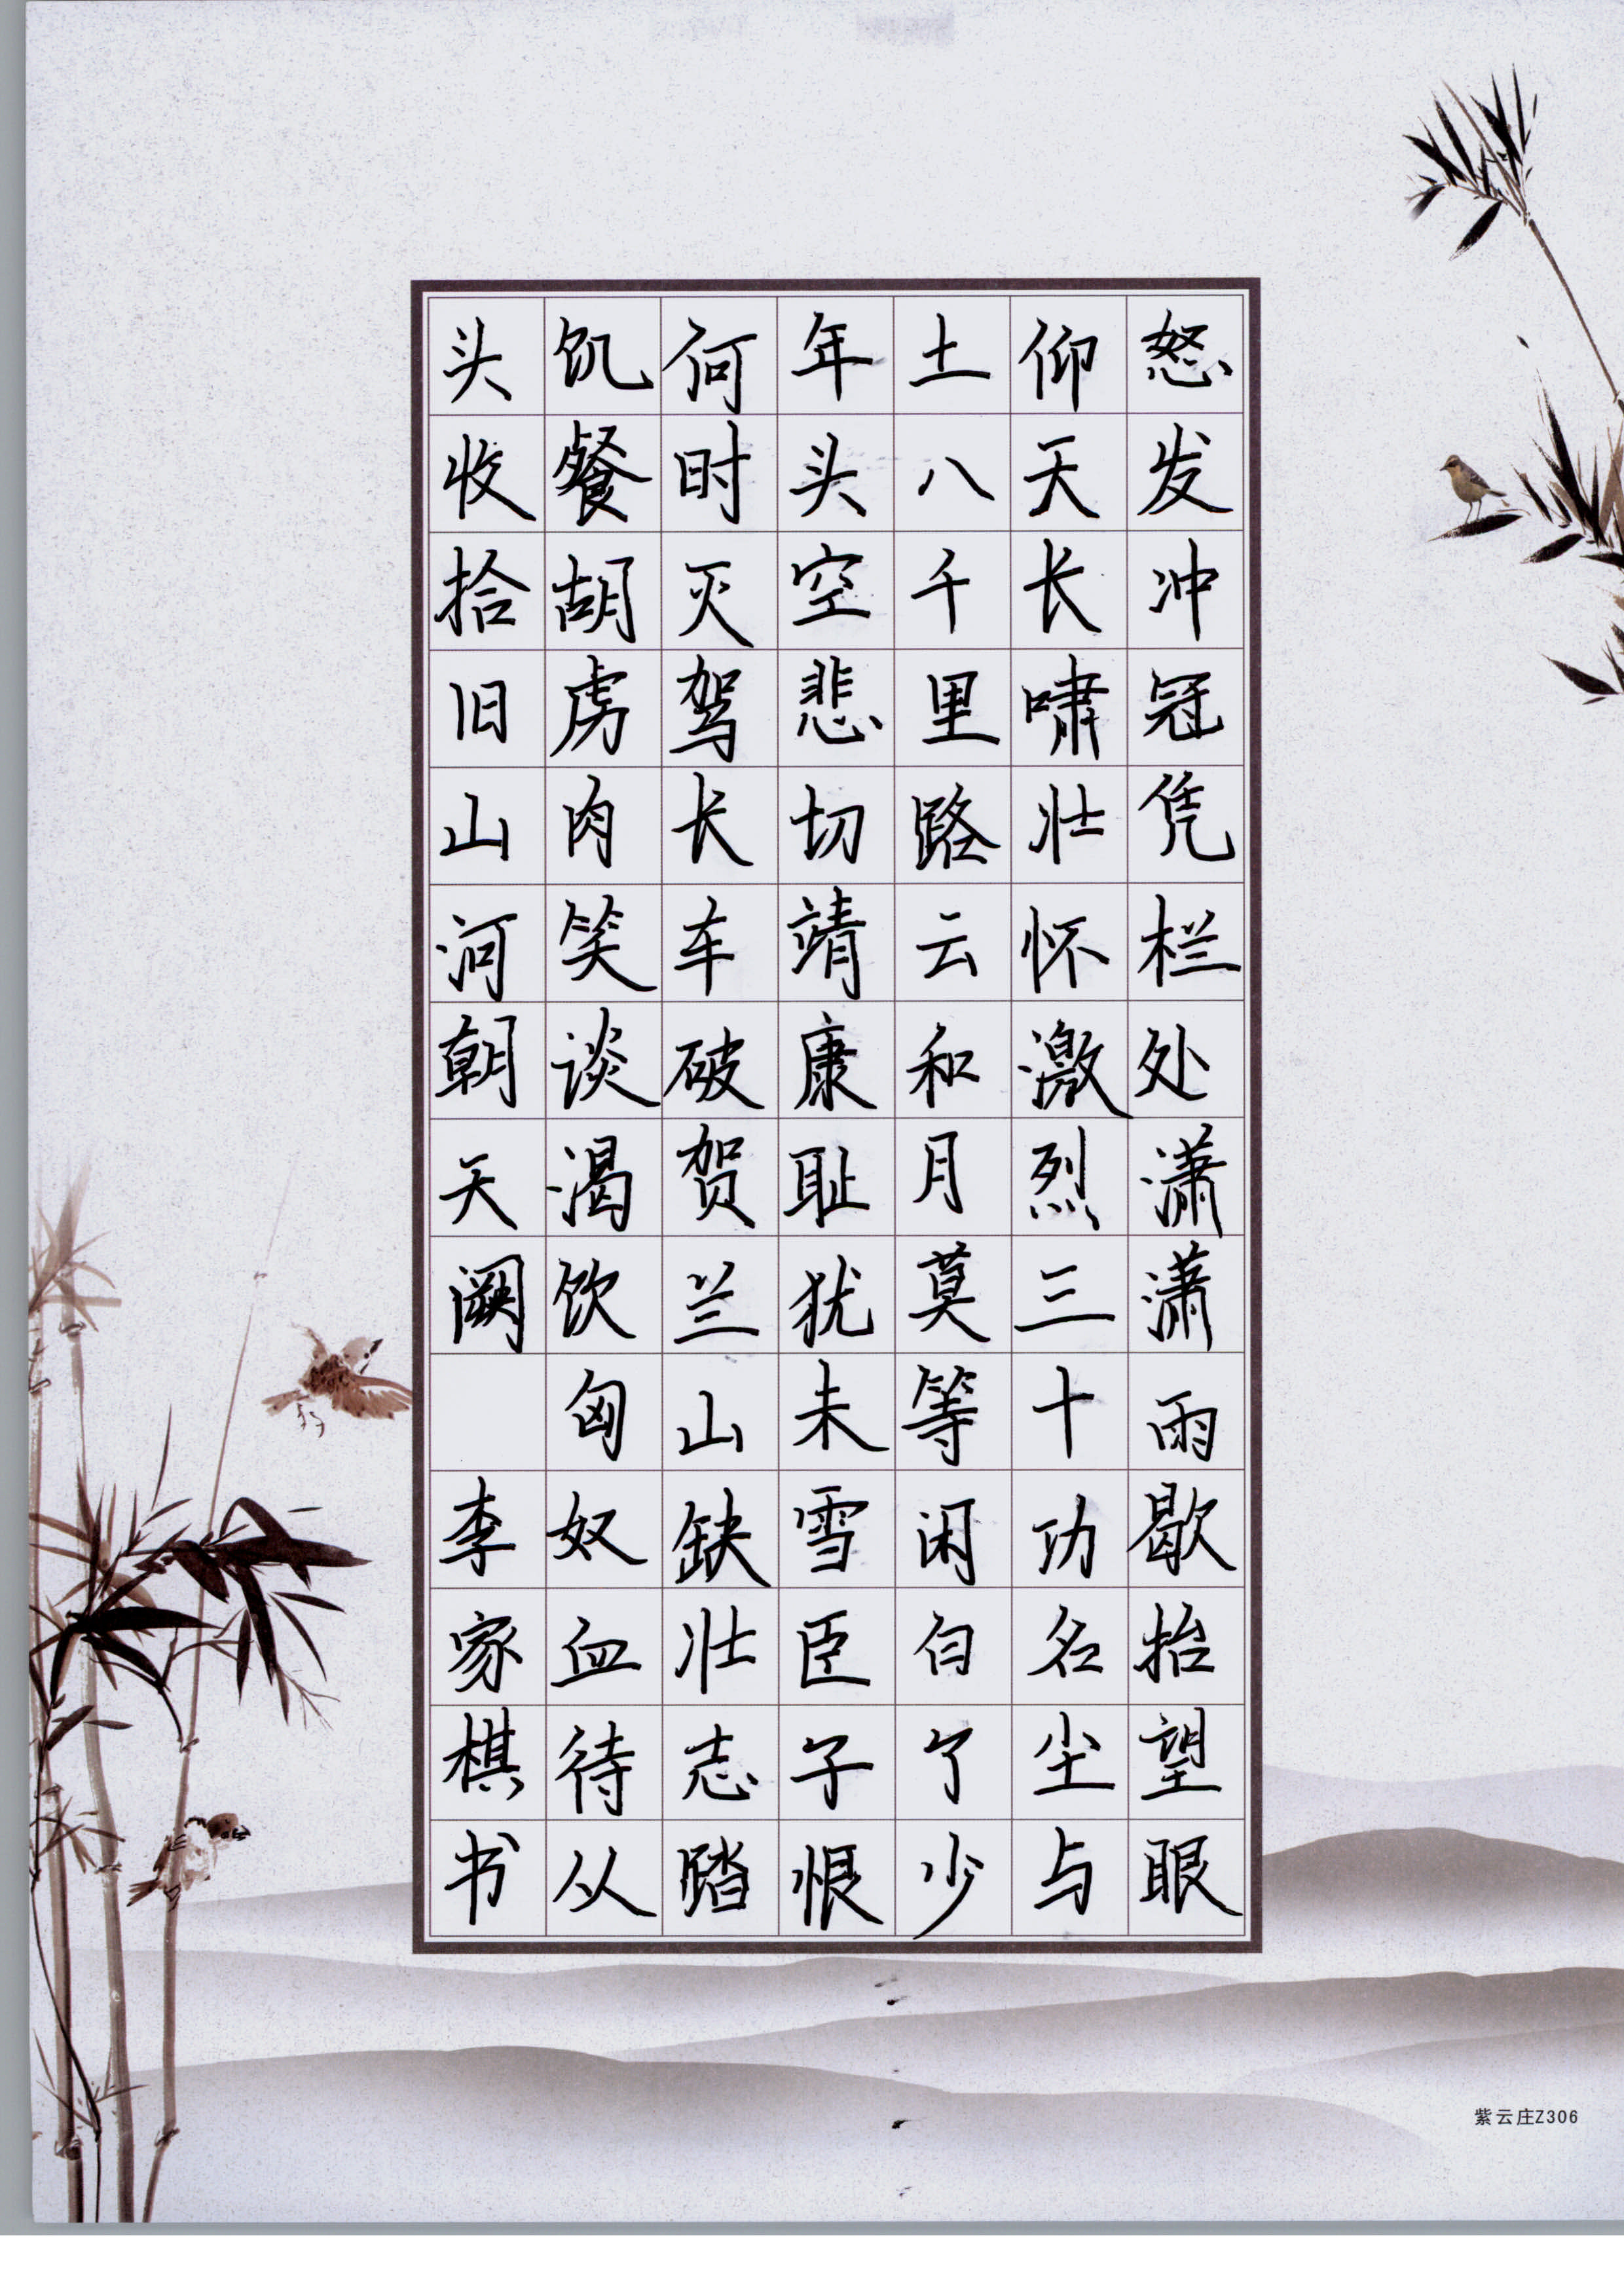 怒发冲冠凭栏处潇潇雨歇抬望眼
仰天长啸壮怀激烈三十功名尘与
土八千里路云和月莫等闲白了少
年头空悲切靖康耻犹未雪臣子恨
何时灭驾长车破贺兰山缺壮志踏
饥餐胡虏肉笑谈渴饮匈奴血待从
头收拾旧山河朝天阙 李家棋书
紫云庄Z306